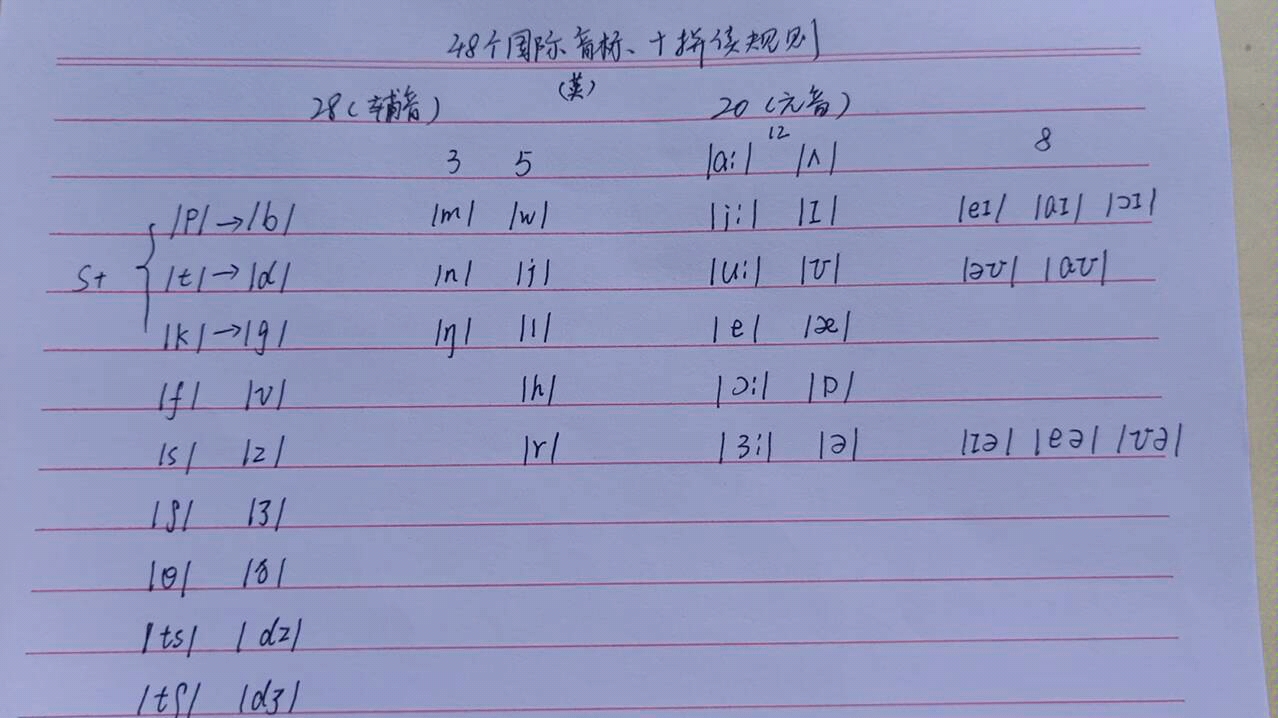 48个国际音标、十拼读规则
(英)
28(辅音) 20(元音)
3 5 12 8
|ɑ:| |ʌ|
S+ |p|→|b| |m| |w| |i:| |ɪ| |eɪ| |aɪ| |ɔɪ|
|t|→|d| |n| |j| |u:| |ʊ| |əʊ| |aʊ|
|k|→|g| |ŋ| |l| |e| |æ|
|f| |v| |h| |ɔ:| |ɒ|
|s| |z| |r| |ɜ:| |ə| |ɪə| |eə| |ʊə|
|ʃ| |ʒ|
|θ| |ð|
|ts| |dz|
|tʃ| |dʒ|